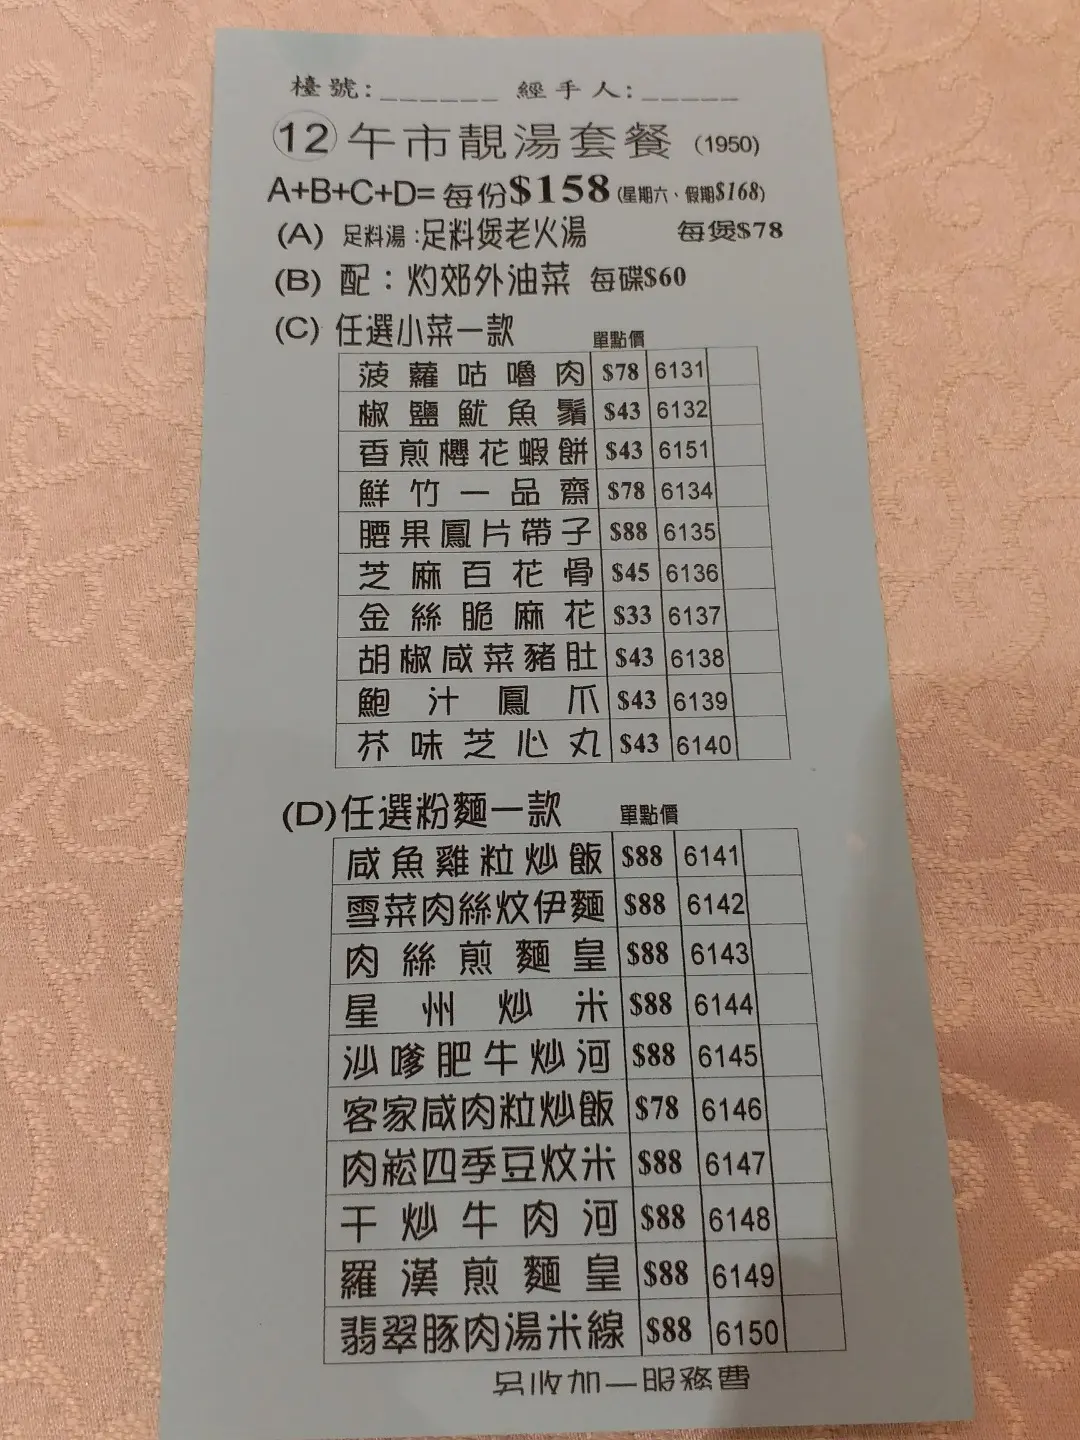 檯號:______ 經手人:_____
12 午市靚湯套餐 (1950)
A+B+C+D= 每份$158 (星期六、假期$168)
(A) 足料湯:足料煲老火湯 每煲$78
(B) 配：灼郊外油菜 每碟$60
(C) 任選小菜一款 單點價
菠蘿咕嚕肉 $78 6131
椒鹽魷魚鬚 $43 6132
香煎櫻花蝦餅 $43 6151
鮮竹一品齋 $78 6134
腰果鳳片帶子 $88 6135
芝麻百花骨 $45 6136
金絲脆麻花 $33 6137
胡椒咸菜豬肚 $43 6138
鮑汁鳳爪 $43 6139
芥味芝心丸 $43 6140
(D)任選粉麵一款 單點價
咸魚雞粒炒飯 $88 6141
雪菜肉絲炆伊麵 $88 6142
肉絲煎麵皇 $88 6143
星州炒米 $88 6144
沙嗲肥牛炒河 $88 6145
客家咸肉粒炒飯 $78 6146
肉崧四季豆炆米 $88 6147
干炒牛肉河 $88 6148
羅漢煎麵皇 $88 6149
翡翠豚肉湯米線 $88 6150
另收加一服務費